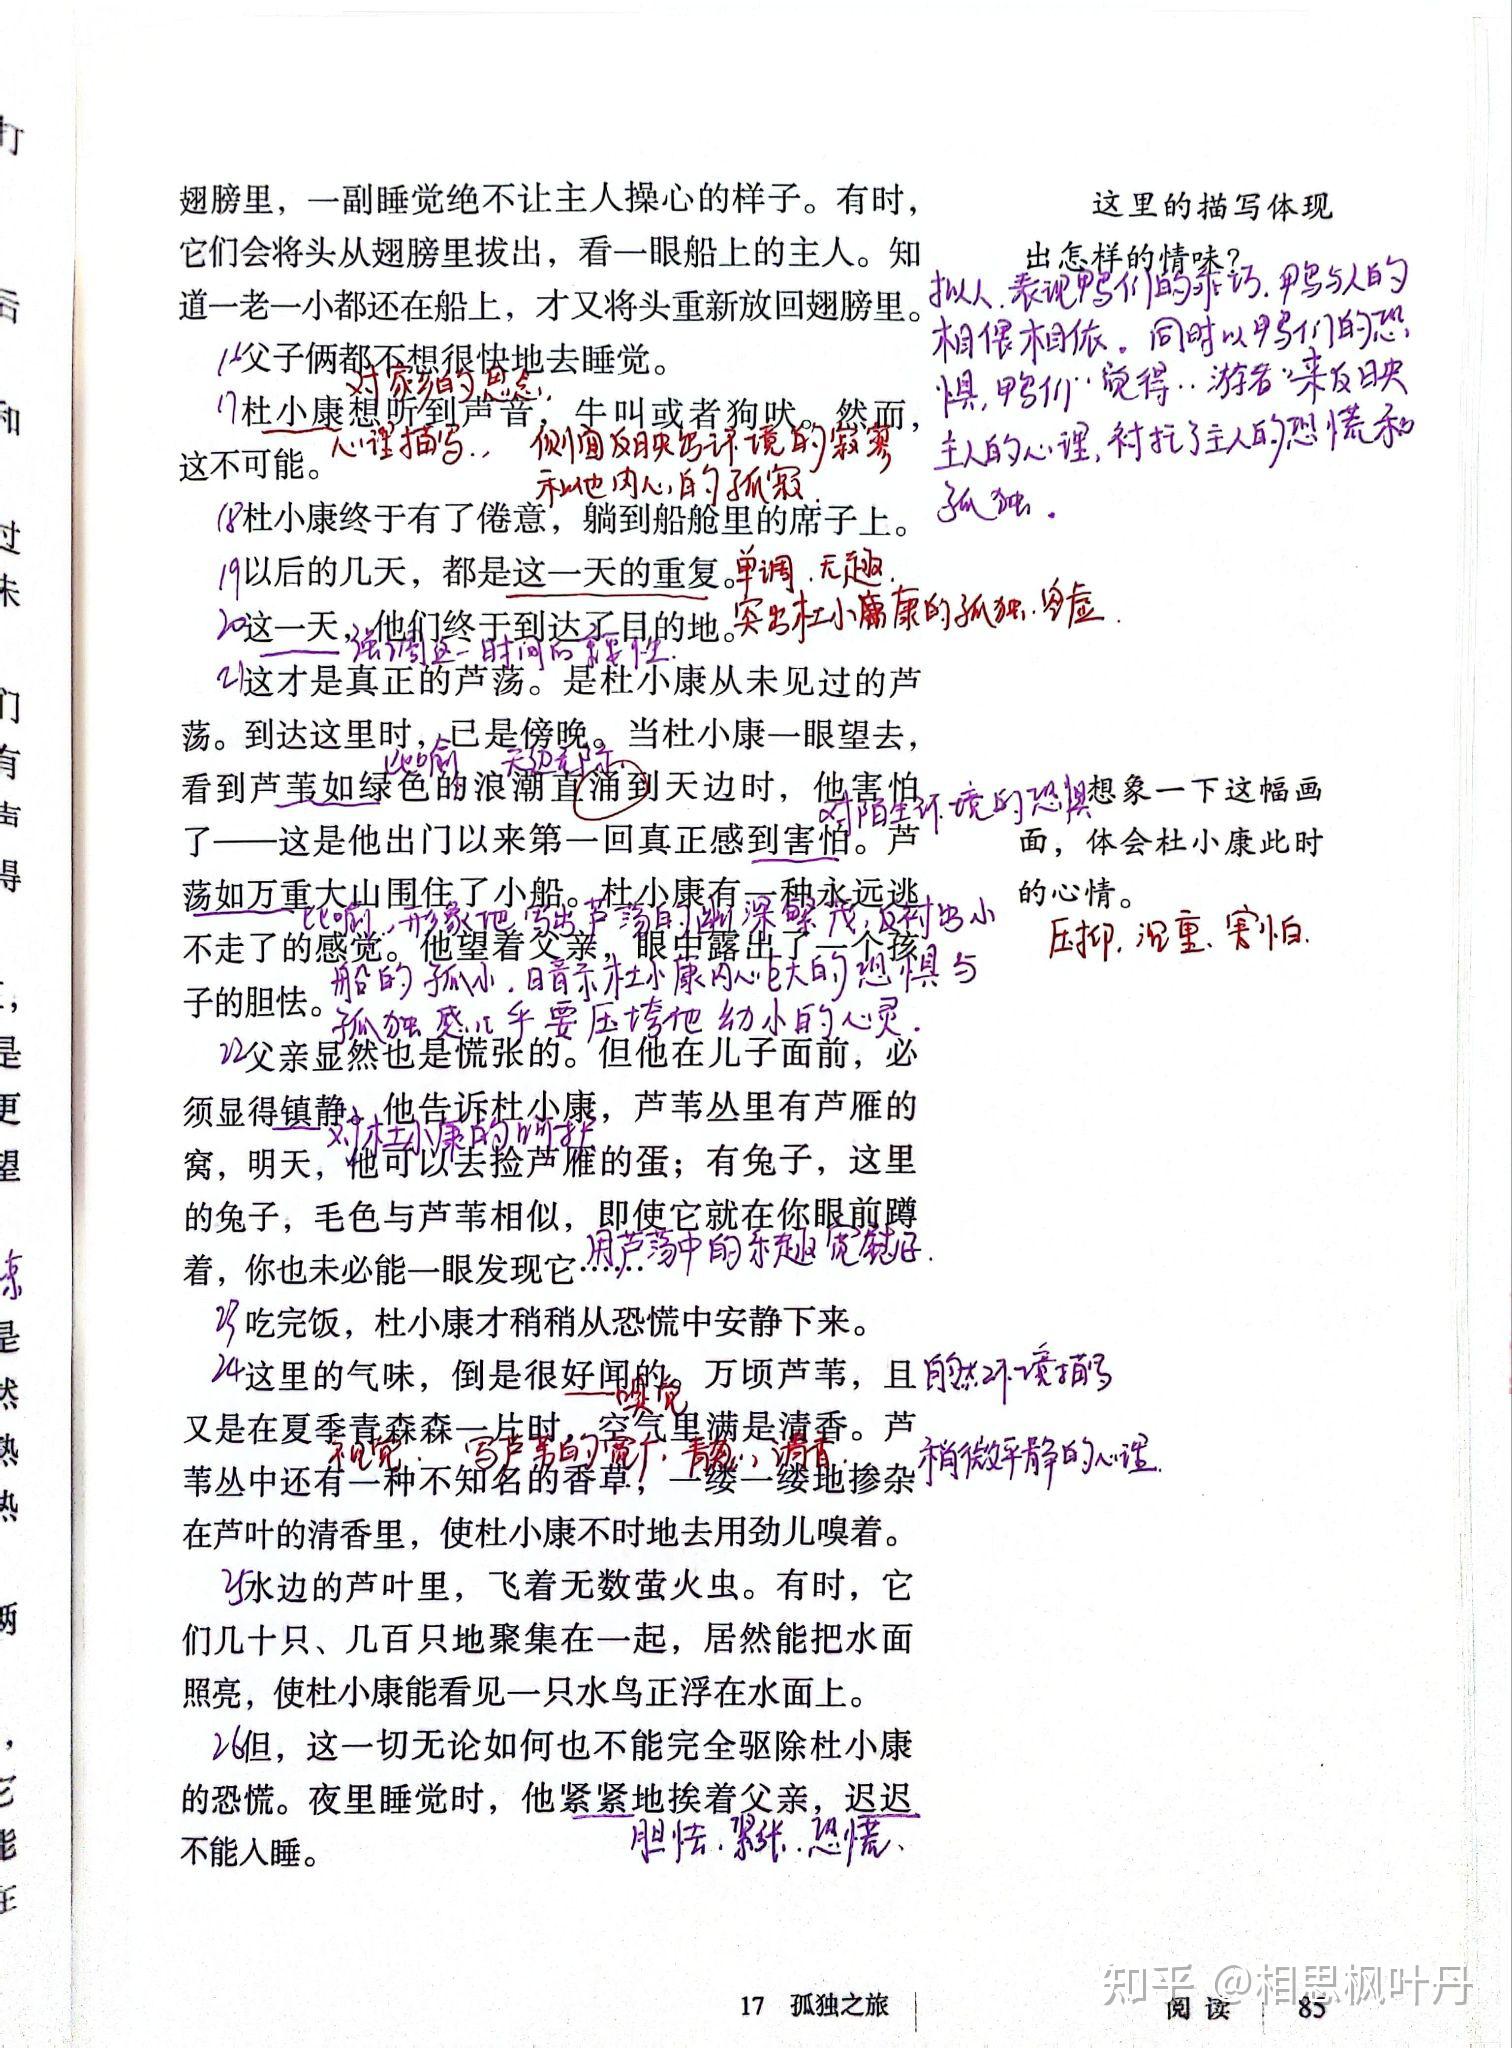 翅膀里，一副睡觉绝不让主人操心的样子。有时，
它们会将头从翅膀里拔出，看一眼船上的主人。知
道一老一小都还在船上，才又将头重新放回翅膀里。
16父子俩都不想很快地去睡觉。
对家乡的思念
17杜小康想听到声音，牛叫或者狗吠。然而，
心理描写. 侧面反映出环境的寂寥
这不可能。
和他内心的孤寂.
18杜小康终于有了倦意，躺到船舱里的席子上。
19以后的几天，都是这一天的重复。单调.无趣.
20这一天，他们终于到达了目的地。突出杜小康的孤独.空虚.
强调这一时间的重要性.
21这才是真正的芦荡。是杜小康从未见过的芦
荡。到达这里时，已是傍晚。当杜小康一眼望去，
比喻 无边无际
看到芦苇如绿色的浪潮直涌到天边时，他害怕
对陌生环境的恐惧
了——这是他出门以来第一回真正感到害怕。芦
荡如万重大山围住了小船。杜小康有一种永远逃
比喻,形象地写出芦荡的幽深繁茂,反衬出小
不走了的感觉。他望着父亲，眼中露出了一个孩
船的孤小.暗示杜小康内心巨大的恐惧与
子的胆怯。
孤独感几乎要压垮他幼小的心灵.
22父亲显然也是慌张的。但他在儿子面前，必
须显得镇静。他告诉杜小康，芦苇丛里有芦雁的
对杜小康的呵护
窝，明天，他可以去捡芦雁的蛋；有兔子，这里
的兔子，毛色与芦苇相似，即使它就在你眼前蹲
用芦荡中的乐趣宽慰儿子.
着，你也未必能一眼发现它……
23吃完饭，杜小康才稍稍从恐慌中安静下来。
24这里的气味，倒是很好闻的。万顷芦苇，且
嗅觉
又是在夏季青森森一片时，空气里满是清香。芦
视觉. 写芦苇的宽广,青葱,清香.
苇丛中还有一种不知名的香草，一缕一缕地掺杂
在芦叶的清香里，使杜小康不时地去用劲儿嗅着。
25水边的芦叶里，飞着无数萤火虫。有时，它
们几十只、几百只地聚集在一起，居然能把水面
照亮，使杜小康能看见一只水鸟正浮在水面上。
26但，这一切无论如何也不能完全驱除杜小康
的恐慌。夜里睡觉时，他紧紧地挨着父亲，迟迟
不能入睡。
胆怯.紧张.恐慌.
这里的描写体现
出怎样的情味？
拟人.表现鸭们的乖巧.鸭与人的
相偎相依。同时以鸭们的恐
惧,鸭们“觉得”“游者”来反映
主人的心理,衬托了主人的恐慌和
孤独.
想象一下这幅画
面，体会杜小康此时
的心情。
压抑.沉重.害怕.
自然环境描写
稍微平静的心理.
17 孤独之旅
阅读 85
知乎 @相思枫叶丹